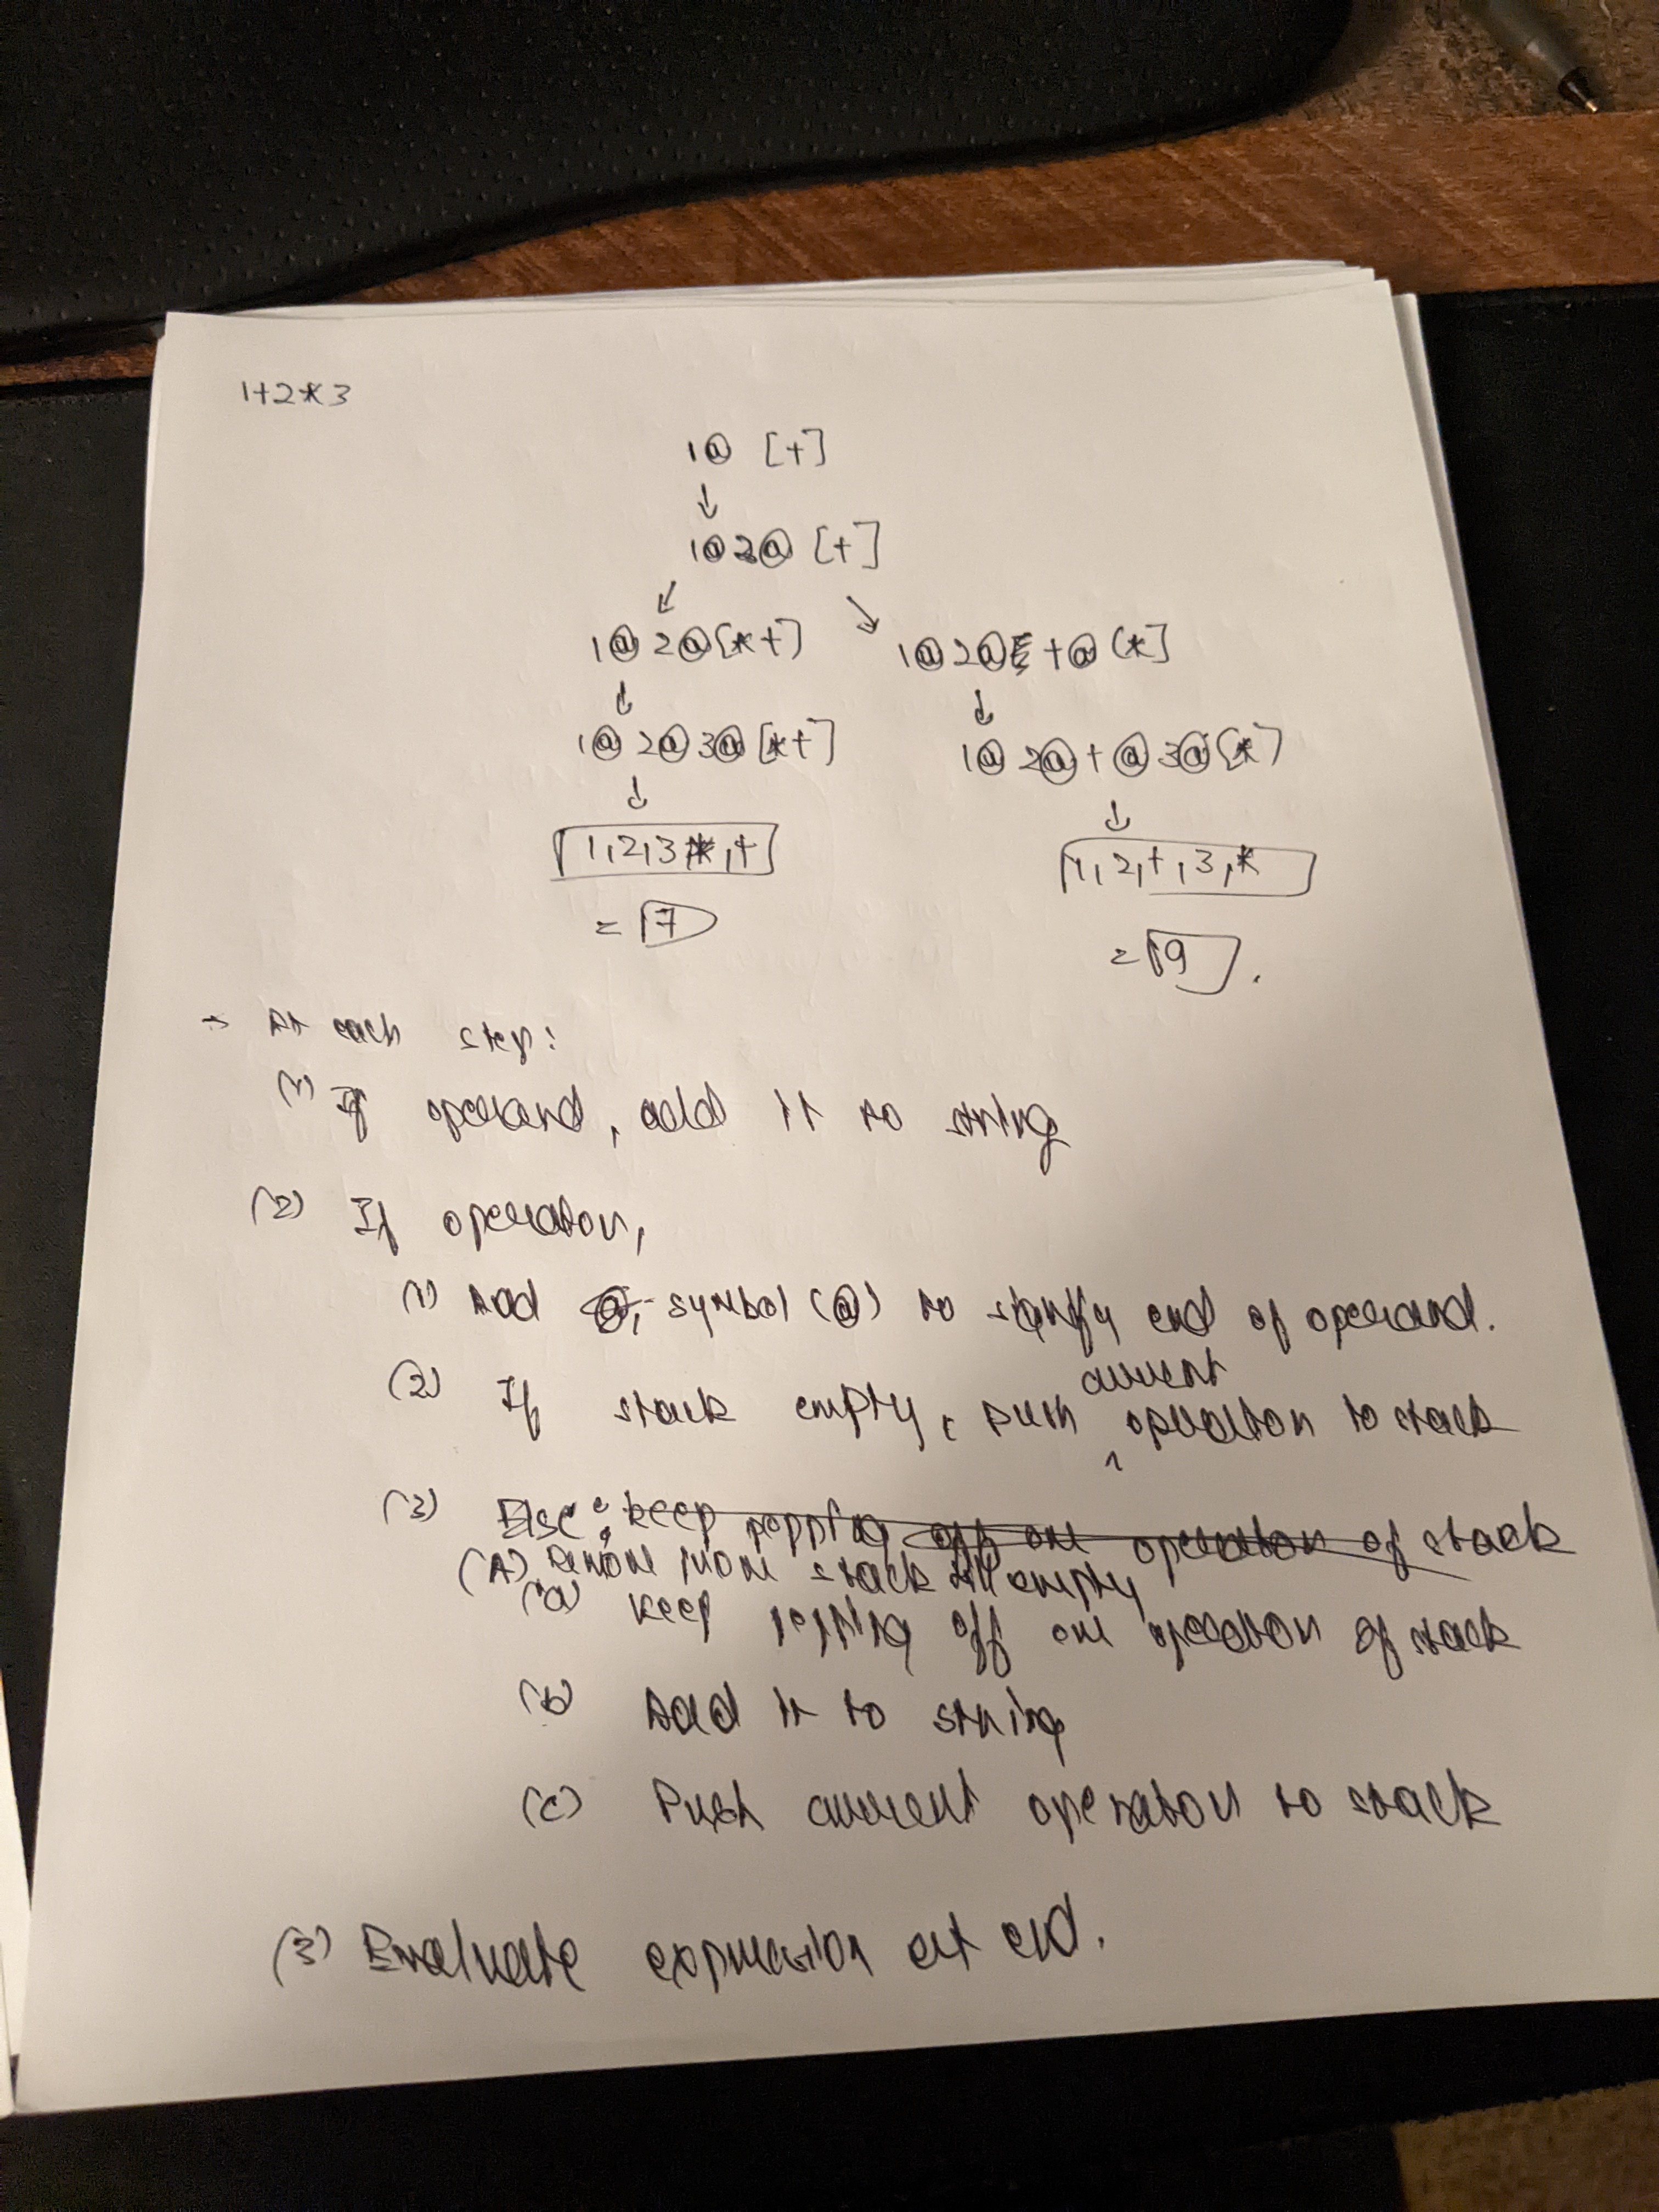 1+2*3
1@ [+]
↓
1@2@ [+]
↙ ↘
1@2@[*+] 1@2@ +@ [*]
↓ ↓
1@2@3@[*+] 1@2@+@3@[*]
↓ ↓
1,2,3*,+ 1,2,+,3,*
= 7 = 9.
→ At each step:
(1) If operand, add it to string
(2) If operator,
(1) Add symbol (@) to signify end of operand.
(2) If stack empty, push current operator to stack
(3) Else: keep popping off one operator of stack
(A) Remove from stack till empty
(a) keep popping off one operator of stack
(b) Add it to string
(c) Push current operator to stack
(3) Evaluate expression at end.